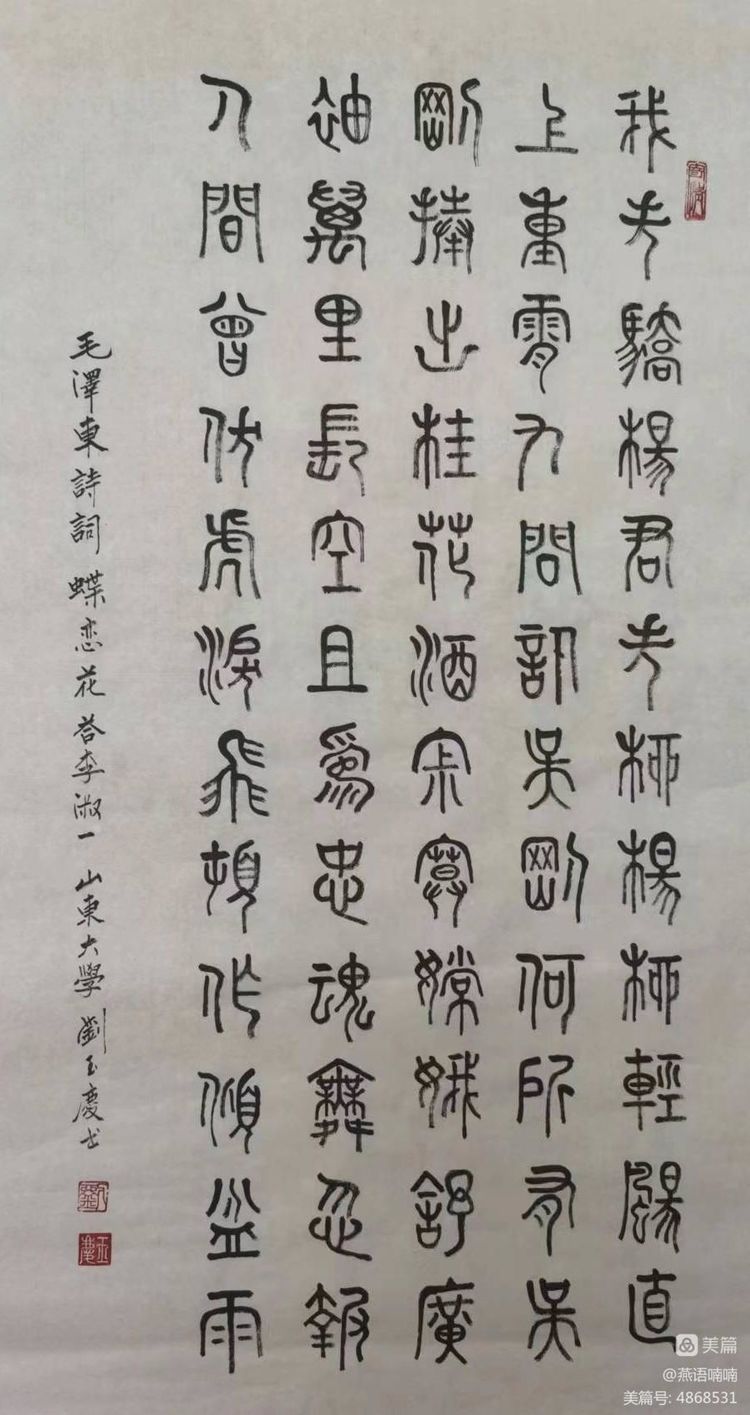 我失驕楊君失柳楊柳輕颺直
上重霄九問訊吳剛何所有吳
剛捧出桂花酒寂寞嫦娥舒廣
袖萬里長空且爲忠魂舞忽報
人間曾伏虎淚飛頓作傾盆雨
毛澤東詩詞 蝶恋花 荅李淑一 山東大學 劉玉慶书
美篇
@燕语喃喃
美篇号: 4868531